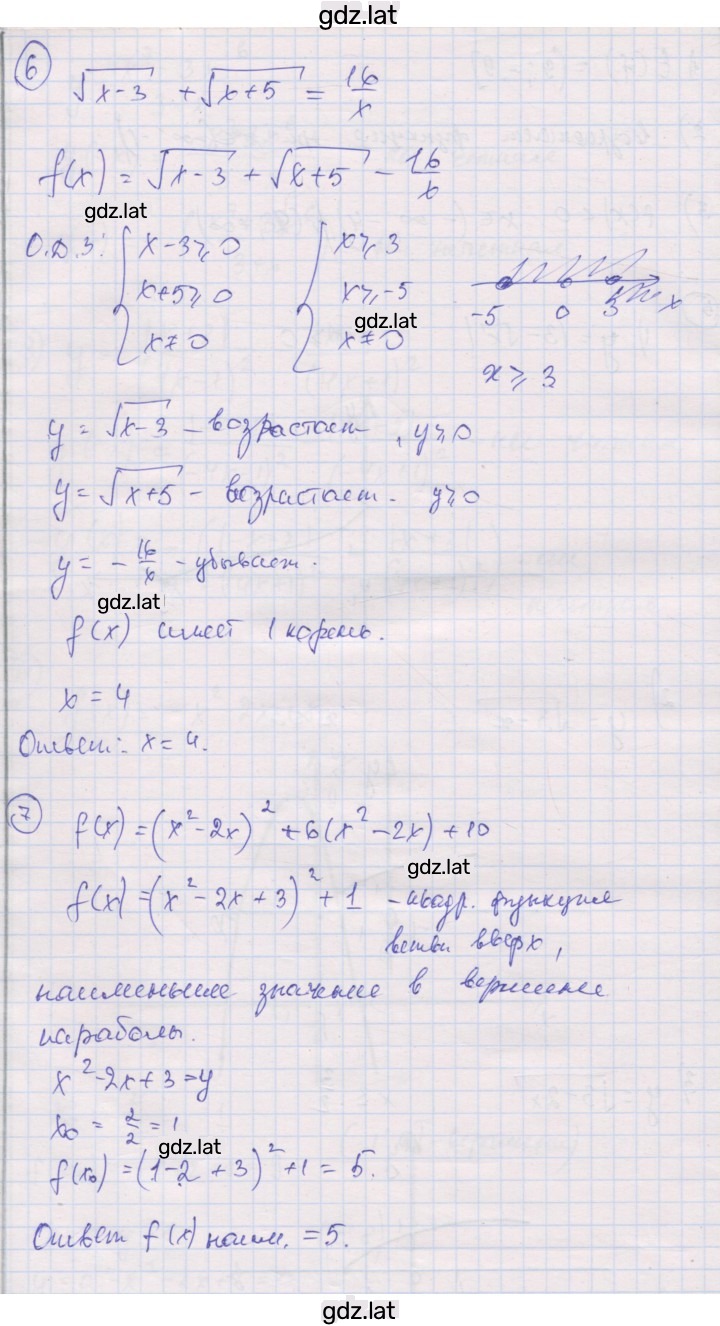 gdz.lat
6
√x-3 + √x+5 = 16/x
f(x) = √x-3 + √x+5 - 16/x
gdz.lat
О.Д.З: { x-3⩾0 { x⩾3
x+5⩾0 x⩾-5
x≠0 x≠0
gdz.lat
-5 0 3 x
x⩾3
y = √x-3 - возрастает, y⩾0
y = √x+5 - возрастает. y⩾0
y = - 16/x - убывает.
gdz.lat
f(x) имеет 1 корень.
x = 4
Ответ: x = 4.
7
f(x) = (x²-2x)² + 6(x²-2x) + 10
gdz.lat
f(x) = (x²-2x+3)² + 1 - квадр. функция
ветви вверх,
наименьшее значение в вершине
параболы.
x²-2x+3 = y
x₀ = 2/2 = 1
gdz.lat
f(x₀) = (1-2+3)² + 1 = 5.
Ответ f(x) наим. = 5.
gdz.lat